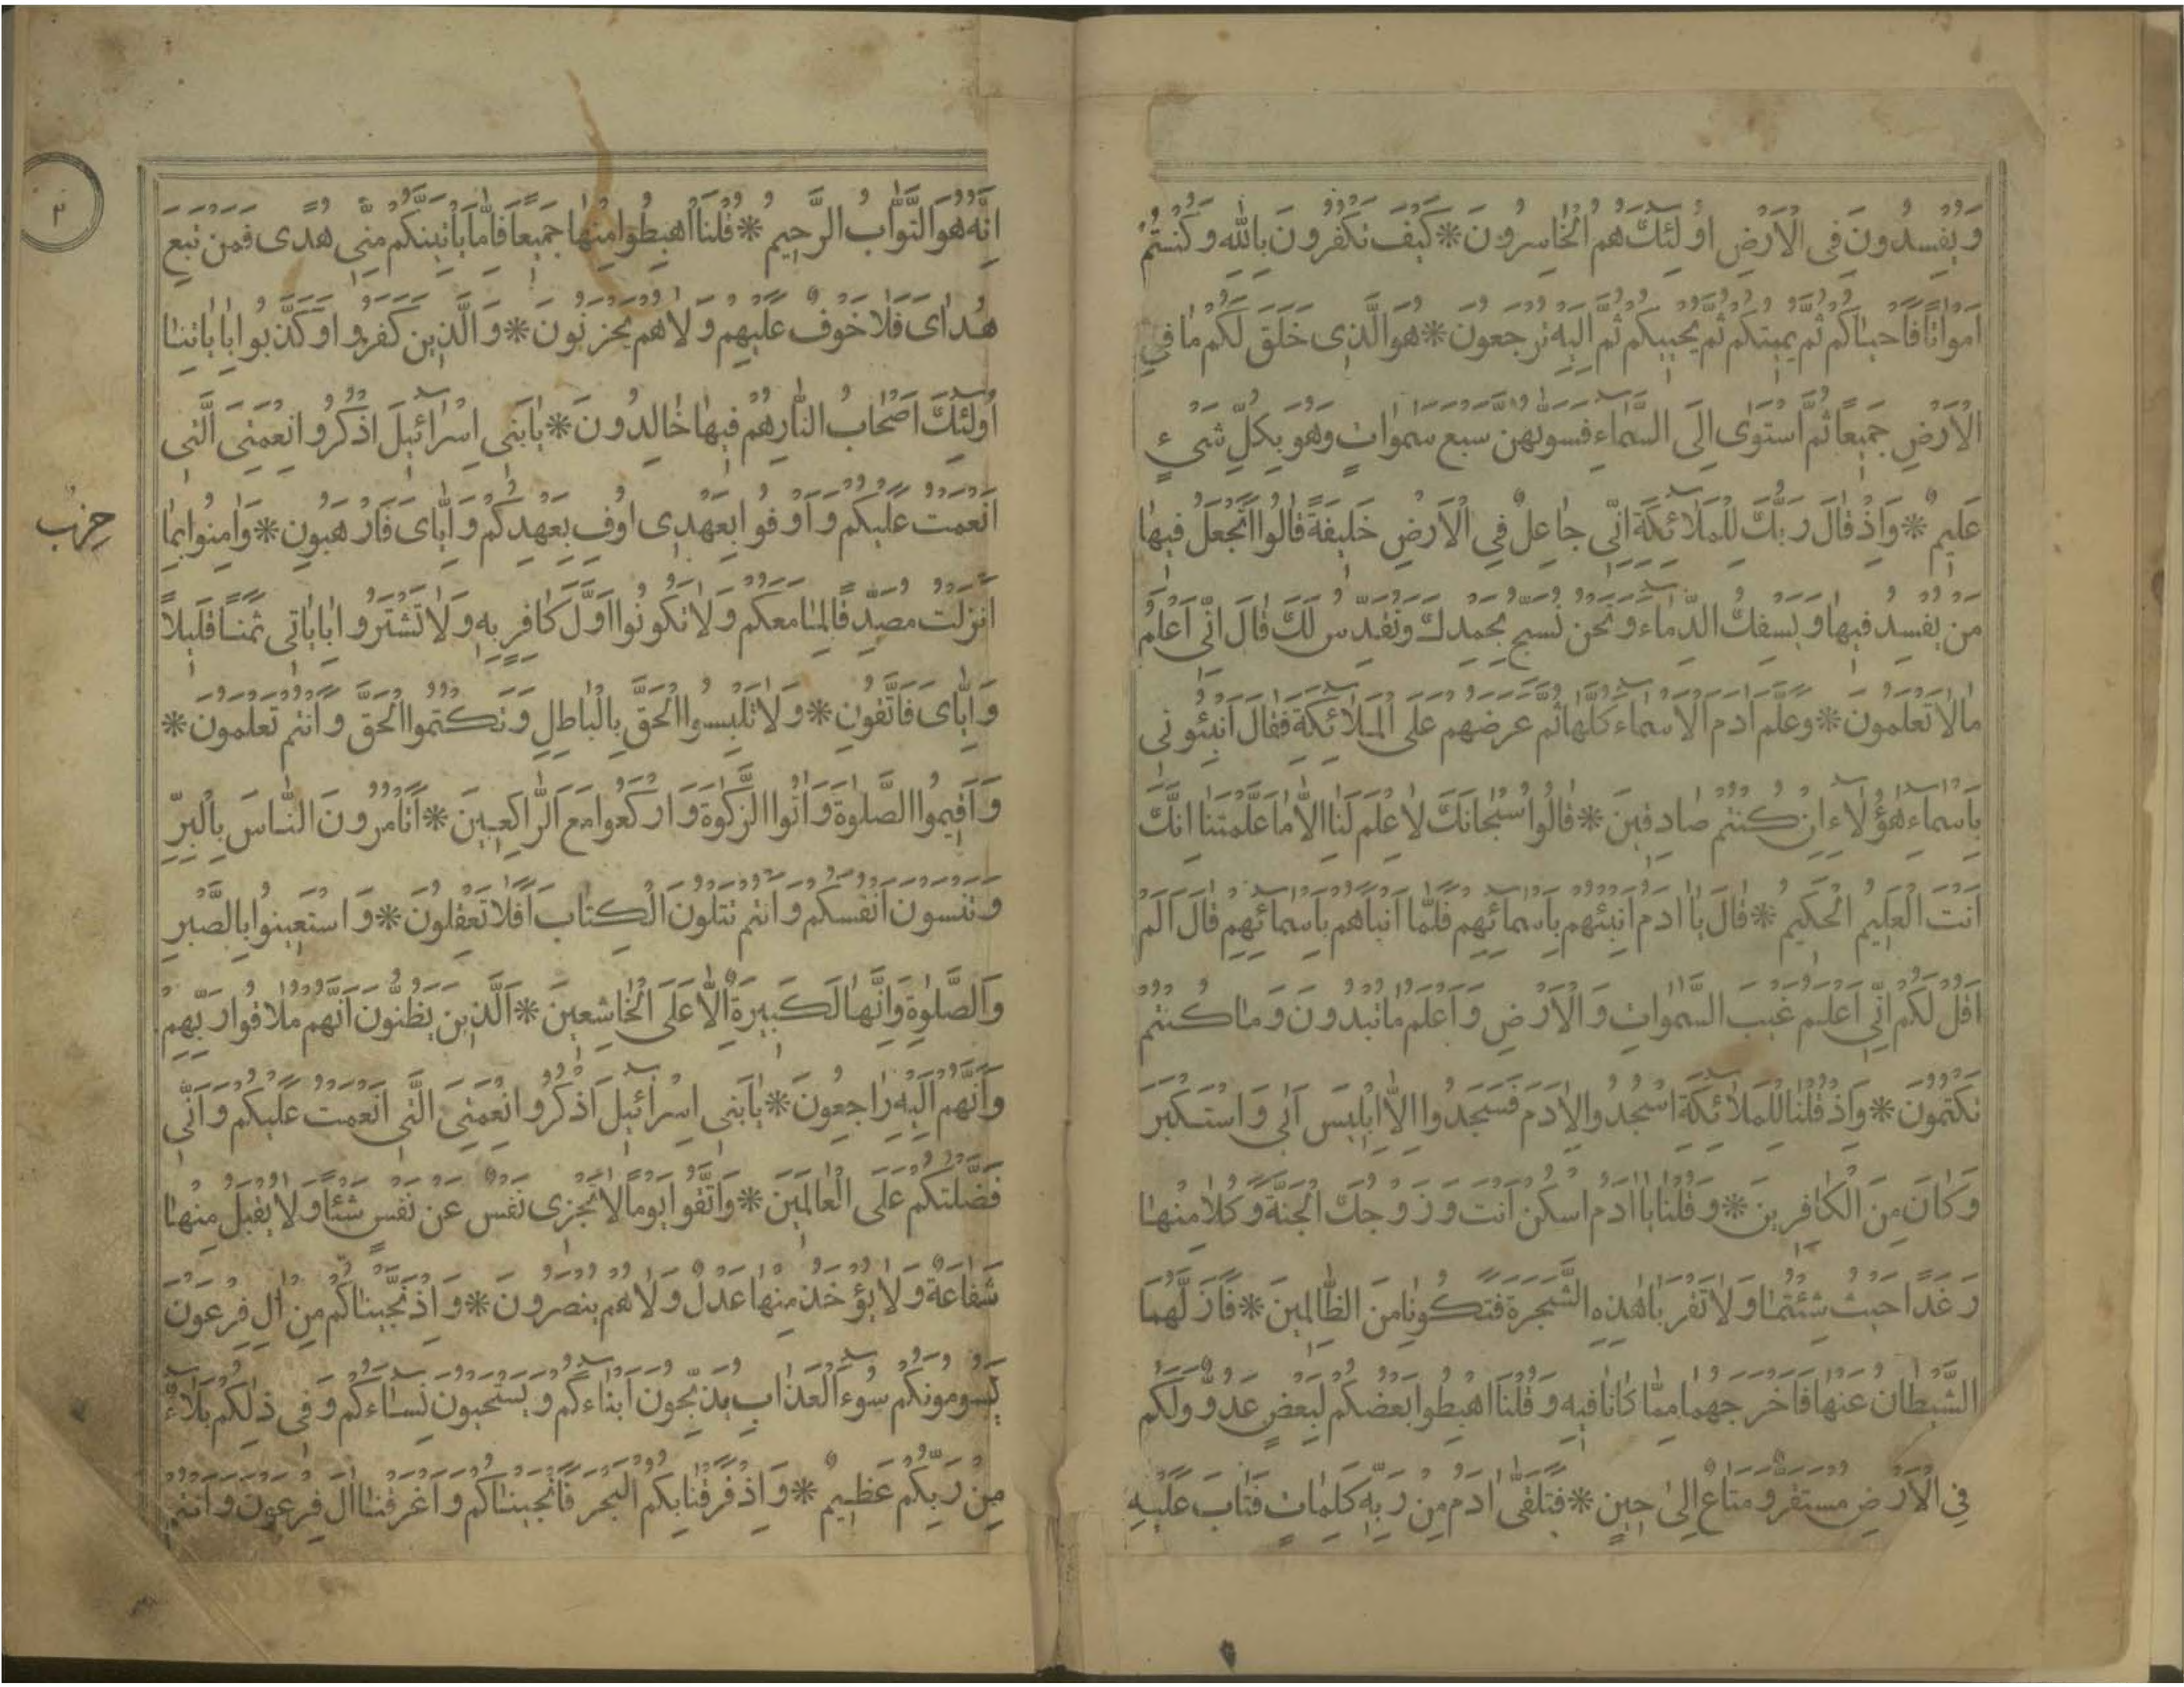 وَيُفْسِدُونَ فِى الْاَرْضِ اُولٰئِكَ هُمُ الْخَاسِرُونَ * كَيْفَ تَكْفُرُونَ بِاللّٰهِ وَكُنْتُمْ
اَمْوَاتًا فَاَحْيَاكُمْ ثُمَّ يُمِيتُكُمْ ثُمَّ يُحْيِيكُمْ ثُمَّ اِلَيْهِ تُرْجَعُونَ * هُوَ الَّذِى خَلَقَ لَكُمْ مَا فِى
الْاَرْضِ جَمِيعًا ثُمَّ اسْتَوٰى اِلَى السَّمَاءِ فَسَوّٰيهُنَّ سَبْعَ سَمٰوَاتٍ وَهُوَ بِكُلِّ شَىْءٍ
عَلِيمٌ * وَاِذْ قَالَ رَبُّكَ لِلْمَلَائِكَةِ اِنِّى جَاعِلٌ فِى الْاَرْضِ خَلِيفَةً قَالُوا اَتَجْعَلُ فِيهَا
مَنْ يُفْسِدُ فِيهَا وَيَسْفِكُ الدِّمَاءَ وَنَحْنُ نُسَبِّحُ بِحَمْدِكَ وَنُقَدِّسُ لَكَ قَالَ اِنِّى اَعْلَمُ
مَا لَا تَعْلَمُونَ * وَعَلَّمَ اٰدَمَ الْاَسْمَاءَ كُلَّهَا ثُمَّ عَرَضَهُمْ عَلَى الْمَلَائِكَةِ فَقَالَ اَنْبِئُونِى
بِاَسْمَاءِ هٰؤُلَاءِ اِنْ كُنْتُمْ صَادِقِينَ * قَالُوا سُبْحَانَكَ لَا عِلْمَ لَنَا اِلَّا مَا عَلَّمْتَنَا اِنَّكَ
اَنْتَ الْعَلِيمُ الْحَكِيمُ * قَالَ يَا اٰدَمُ اَنْبِئْهُمْ بِاَسْمَائِهِمْ فَلَمَّا اَنْبَاَهُمْ بِاَسْمَائِهِمْ قَالَ اَلَمْ
اَقُلْ لَكُمْ اِنِّى اَعْلَمُ غَيْبَ السَّمٰوَاتِ وَالْاَرْضِ وَاَعْلَمُ مَا تُبْدُونَ وَمَا كُنْتُمْ
تَكْتُمُونَ * وَاِذْ قُلْنَا لِلْمَلَائِكَةِ اسْجُدُوا لِاٰدَمَ فَسَجَدُوا اِلَّا اِبْلِيسَ اَبٰى وَاسْتَكْبَرَ
وَكَانَ مِنَ الْكَافِرِينَ * وَقُلْنَا يَا اٰدَمُ اسْكُنْ اَنْتَ وَزَوْجُكَ الْجَنَّةَ وَكُلَا مِنْهَا
رَغَدًا حَيْثُ شِئْتُمَا وَلَا تَقْرَبَا هٰذِهِ الشَّجَرَةَ فَتَكُونَا مِنَ الظَّالِمِينَ * فَاَزَلَّهُمَا
الشَّيْطَانُ عَنْهَا فَاَخْرَجَهُمَا مِمَّا كَانَا فِيهِ وَقُلْنَا اهْبِطُوا بَعْضُكُمْ لِبَعْضٍ عَدُوٌّ وَلَكُمْ
فِى الْاَرْضِ مُسْتَقَرٌّ وَمَتَاعٌ اِلٰى حِينٍ * فَتَلَقّٰى اٰدَمُ مِنْ رَبِّهِ كَلِمَاتٍ فَتَابَ عَلَيْهِ
اِنَّهُ هُوَ التَّوَّابُ الرَّحِيمُ * قُلْنَا اهْبِطُوا مِنْهَا جَمِيعًا فَاِمَّا يَاْتِيَنَّكُمْ مِنِّى هُدًى فَمَنْ تَبِعَ
هُدَاىَ فَلَا خَوْفٌ عَلَيْهِمْ وَلَا هُمْ يَحْزَنُونَ * وَالَّذِينَ كَفَرُوا وَكَذَّبُوا بِاٰيَاتِنَا
اُولٰئِكَ اَصْحَابُ النَّارِ هُمْ فِيهَا خَالِدُونَ * يَا بَنِى اِسْرَائِيلَ اذْكُرُوا نِعْمَتِىَ الَّتِى
اَنْعَمْتُ عَلَيْكُمْ وَاَوْفُوا بِعَهْدِى اُوفِ بِعَهْدِكُمْ وَاِيَّاىَ فَارْهَبُونِ * وَاٰمِنُوا بِمَا
اَنْزَلْتُ مُصَدِّقًا لِمَا مَعَكُمْ وَلَا تَكُونُوا اَوَّلَ كَافِرٍ بِهِ وَلَا تَشْتَرُوا بِاٰيَاتِى ثَمَنًا قَلِيلًا
وَاِيَّاىَ فَاتَّقُونِ * وَلَا تَلْبِسُوا الْحَقَّ بِالْبَاطِلِ وَتَكْتُمُوا الْحَقَّ وَاَنْتُمْ تَعْلَمُونَ *
وَاَقِيمُوا الصَّلٰوةَ وَاٰتُوا الزَّكٰوةَ وَارْكَعُوا مَعَ الرَّاكِعِينَ * اَتَاْمُرُونَ النَّاسَ بِالْبِرِّ
وَتَنْسَوْنَ اَنْفُسَكُمْ وَاَنْتُمْ تَتْلُونَ الْكِتَابَ اَفَلَا تَعْقِلُونَ * وَاسْتَعِينُوا بِالصَّبْرِ
وَالصَّلٰوةِ وَاِنَّهَا لَكَبِيرَةٌ اِلَّا عَلَى الْخَاشِعِينَ * اَلَّذِينَ يَظُنُّونَ اَنَّهُمْ مُلَاقُوا رَبِّهِمْ
وَاَنَّهُمْ اِلَيْهِ رَاجِعُونَ * يَا بَنِى اِسْرَائِيلَ اذْكُرُوا نِعْمَتِىَ الَّتِى اَنْعَمْتُ عَلَيْكُمْ وَاَنِّى
فَضَّلْتُكُمْ عَلَى الْعَالَمِينَ * وَاتَّقُوا يَوْمًا لَا تَجْزِى نَفْسٌ عَنْ نَفْسٍ شَيْئًا وَلَا يُقْبَلُ مِنْهَا
شَفَاعَةٌ وَلَا يُؤْخَذُ مِنْهَا عَدْلٌ وَلَا هُمْ يُنْصَرُونَ * وَاِذْ نَجَّيْنَاكُمْ مِنْ اٰلِ فِرْعَوْنَ
يَسُومُونَكُمْ سُوءَ الْعَذَابِ يُذَبِّحُونَ اَبْنَاءَكُمْ وَيَسْتَحْيُونَ نِسَاءَكُمْ وَفِى ذٰلِكُمْ بَلَاءٌ
مِنْ رَبِّكُمْ عَظِيمٌ * وَاِذْ فَرَقْنَا بِكُمُ الْبَحْرَ فَاَنْجَيْنَاكُمْ وَاَغْرَقْنَا اٰلَ فِرْعَوْنَ وَاَنْتُمْ
حِزْب